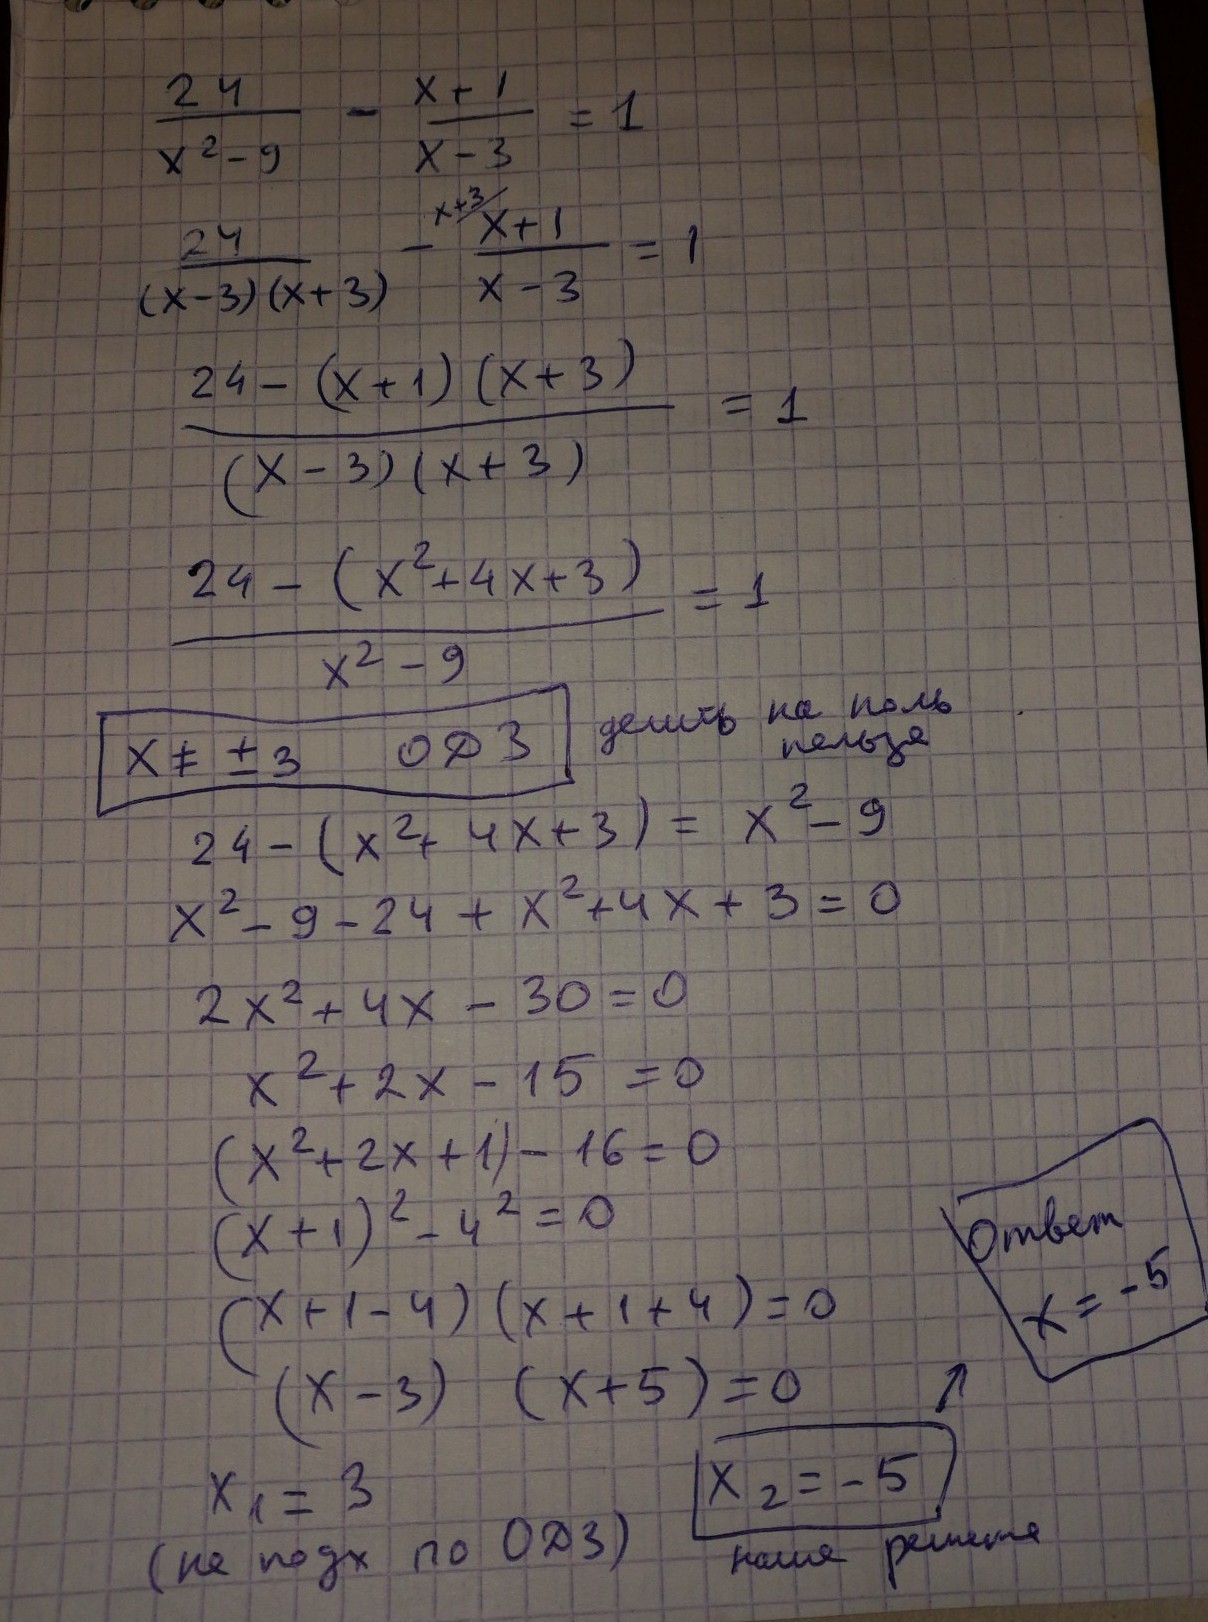 24/(x² - 9) - (x + 1)/(x - 3) = 1
24/((x-3)(x+3)) - x+3/ (x+1)/(x-3) = 1
(24 - (x+1)(x+3))/((x-3)(x+3)) = 1
(24 - (x²+4x+3))/(x² - 9) = 1
x ≠ ±3 ОДЗ делить на ноль
нельзя
24 - (x² + 4x + 3) = x² - 9
x² - 9 - 24 + x² + 4x + 3 = 0
2x² + 4x - 30 = 0
x² + 2x - 15 = 0
(x² + 2x + 1) - 16 = 0
(x + 1)² - 4² = 0
(x + 1 - 4) (x + 1 + 4) = 0
(x - 3) (x + 5) = 0
Ответ
x = -5
x₁ = 3 x₂ = -5
(не подх по ОДЗ) наше